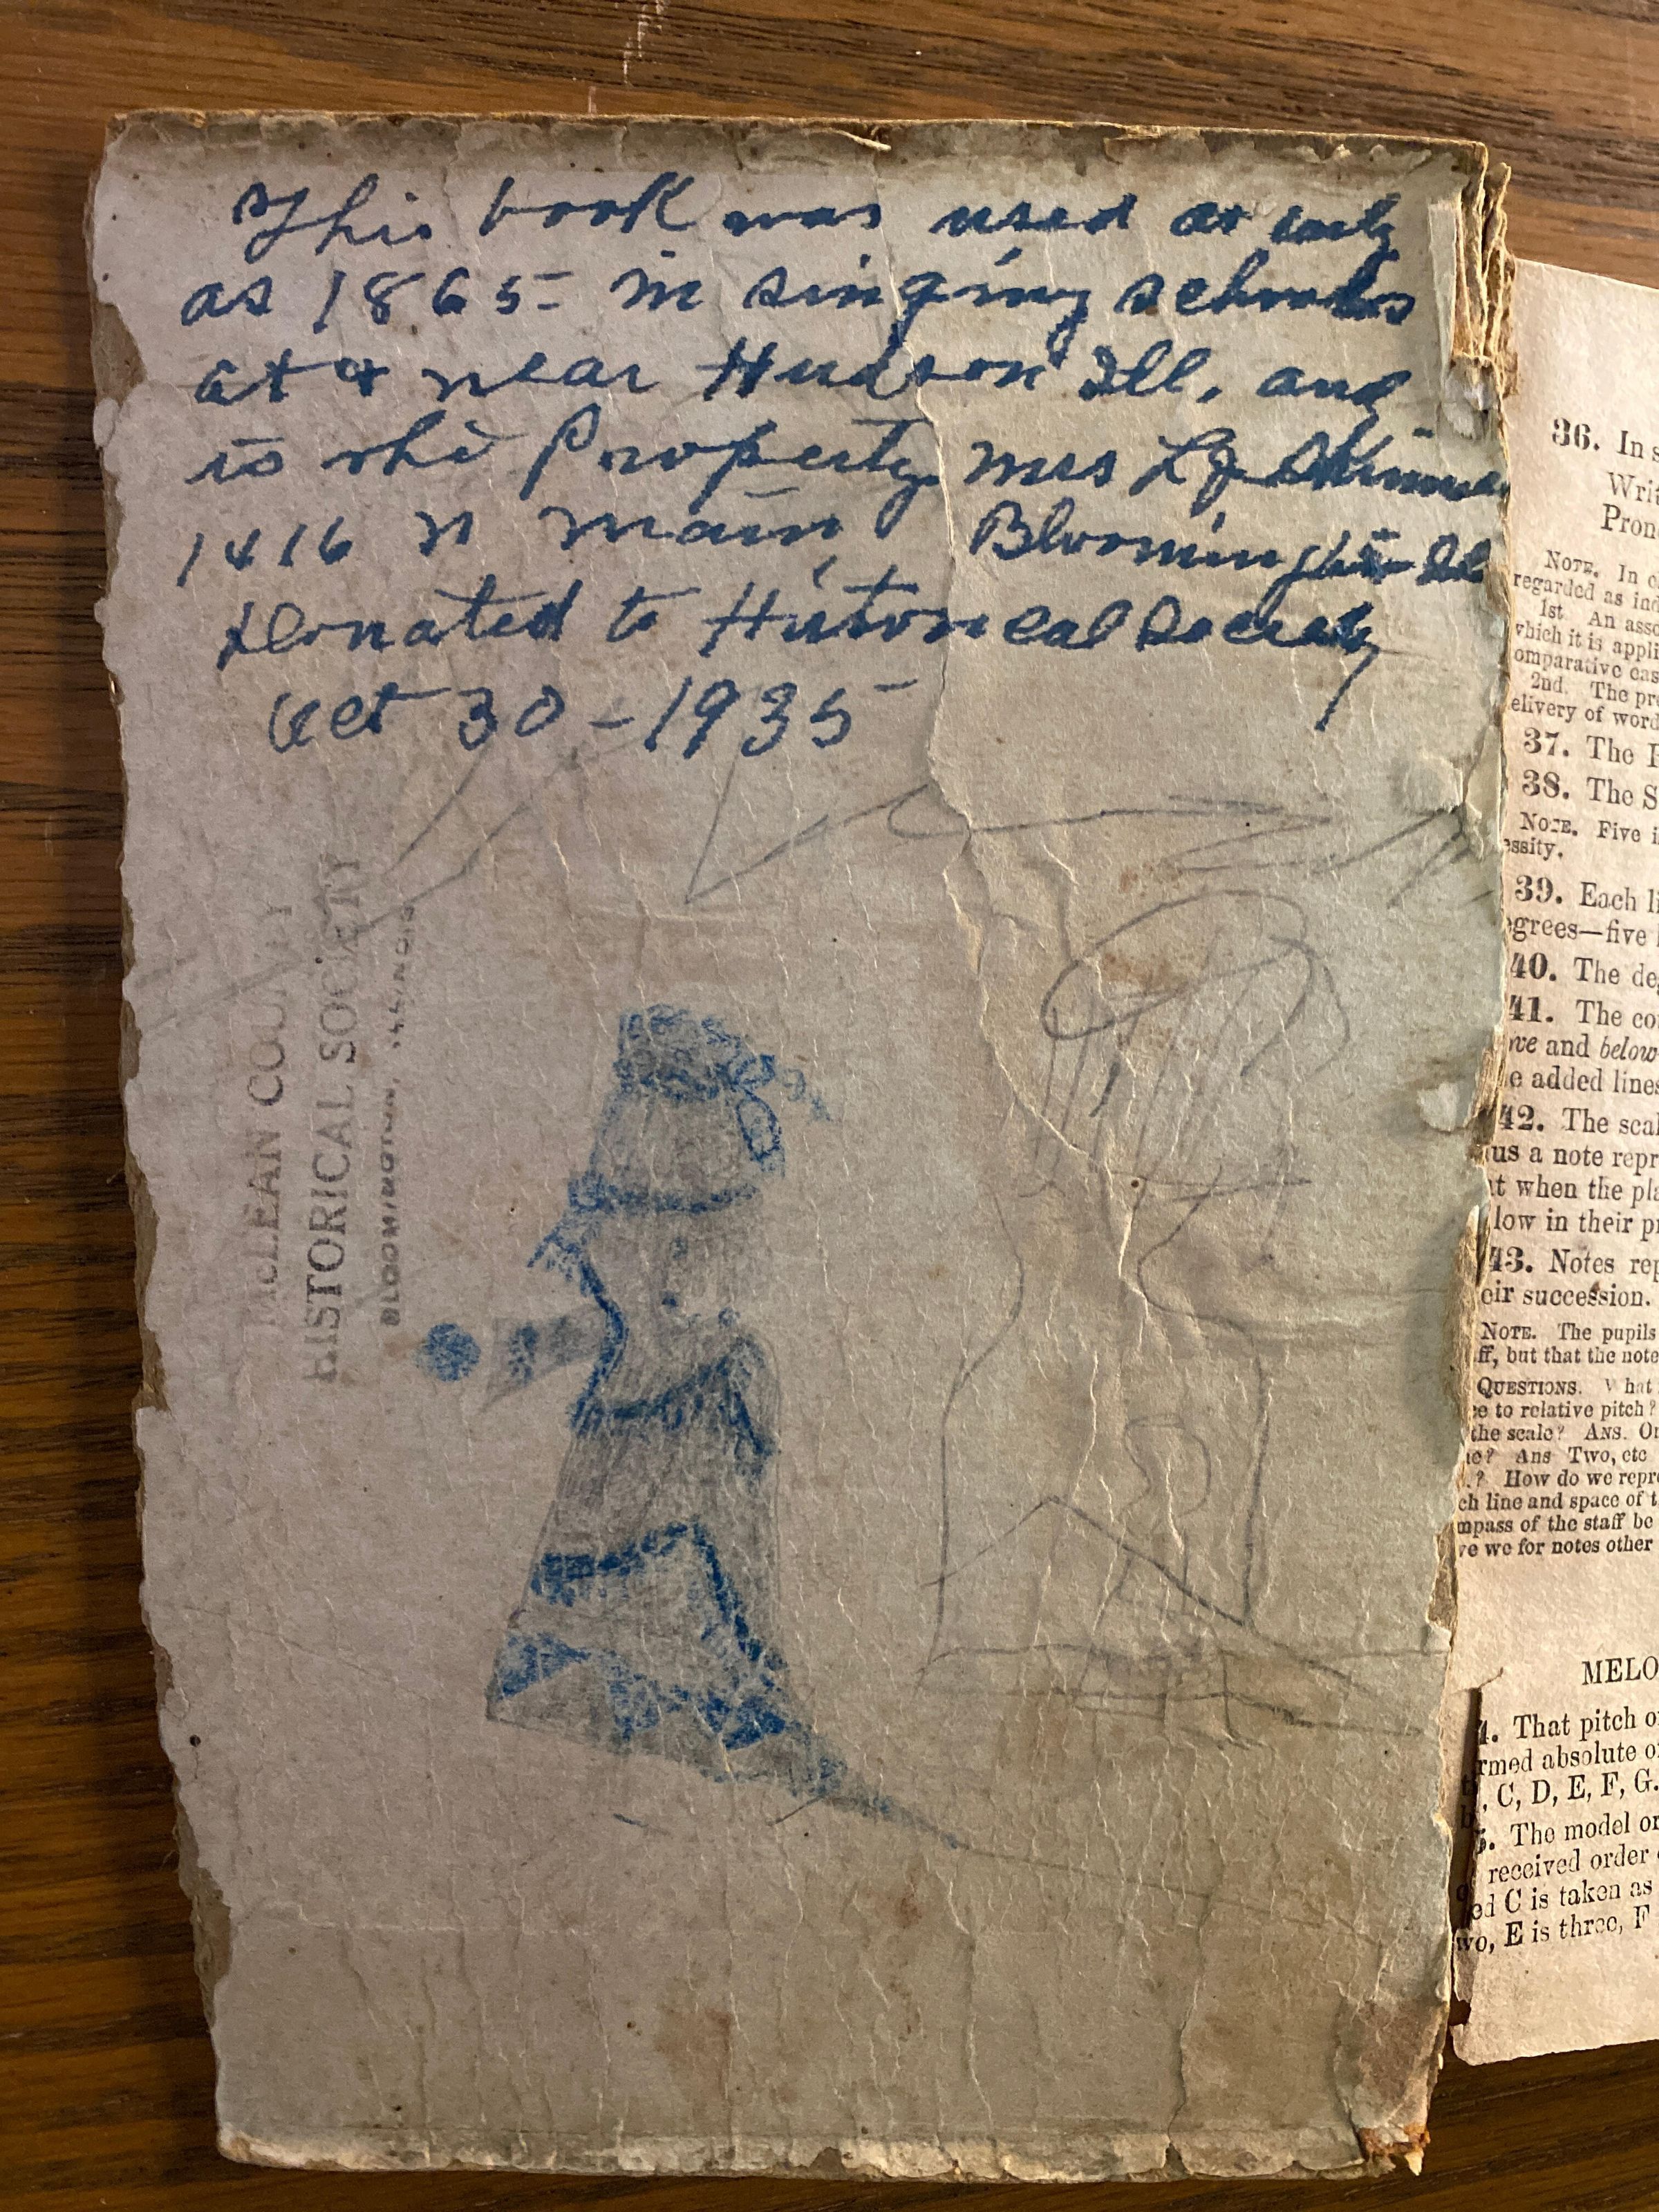 This book was used as early
as 1865 - in singing schools
at & near Hudson Ill, and
is the Property Mrs L J Skinner
1416 N Main, Bloomington Ill
Donated to Historical Society
Oct 30 - 1935
McLEAN COUNTY
HISTORICAL SOCIETY
BLOOMINGTON, ILLINOIS
36. In s
Writ
Pron
NOTE. In c
regarded as ind
1st. An asso
which it is appli
omparative cas
2nd. The pre
elivery of word
37. The P
38. The S
NOTE. Five i
essity.
39. Each li
egrees—five l
40. The deg
41. The co
ove and below
e added lines
42. The scal
us a note repr
t when the pla
low in their pi
43. Notes rep
eir succession.
NOTE. The pupils
ff, but that the note
QUESTIONS. What
ce to relative pitch?
the scale? ANS. On
ne? Ans Two, etc
? How do we repre
ch line and space of t
mpass of the staff be
ve we for notes other
MELO
4. That pitch o
rmed absolute o
, C, D, E, F, G.
5. The model or
received order
ed C is taken as
wo, E is three, F